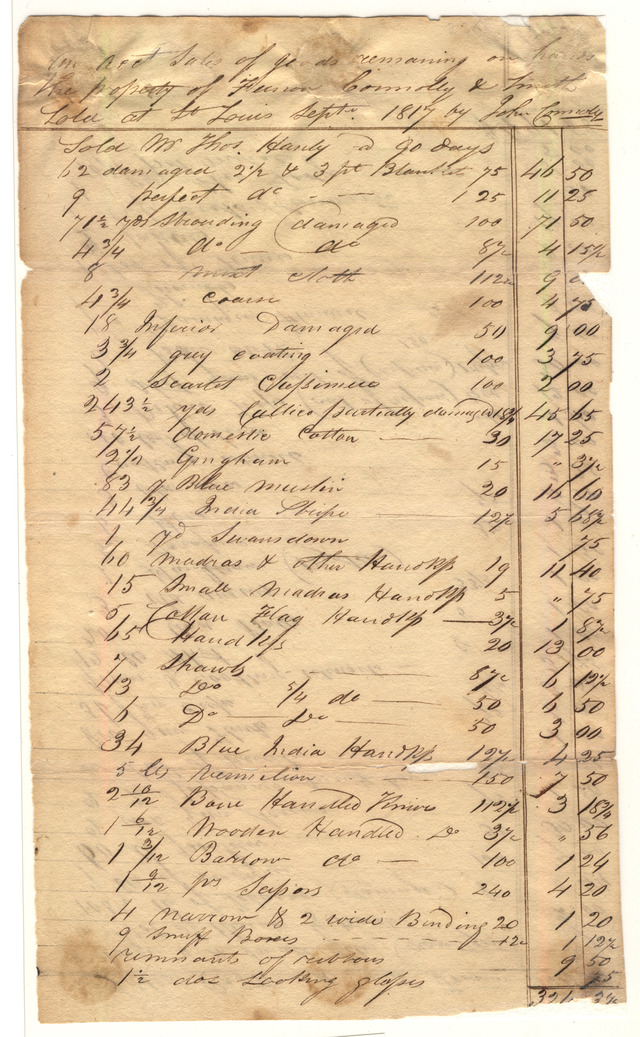 on acct Sales of goods remaining on hands
the property of Connolly & Smith
Sold at St Louis Septr. 1817 by John Connolly
Sold Mr Thos. Handy @ 90 days
62 damaged 2 1/2 & 3 pt Blankets 75 46 50
9 perfect do — 1 25 11 25
71 1/2 yds Strouding damaged 100 71 50
4 3/4 do — do 87 1/2 4 15 1/2
8 cloth 112 1/2 9
4 3/4 coarse 100 4 75
18 Inferior Damaged 50 9 00
3 3/4 grey coating 100 3 75
2 Scarlet Cassimere 100 2 00
243 1/2 yds Callico partially damaged 18 3/4 45 65
57 1/2 domestic Cotton — 30 17 25
2 1/2 Gingham 15 " 37 1/2
83 y Blue muslin 20 16 60
44 3/4 India Stripe 12 1/2 5 68 1/2
1 yd Swansdown 75
60 Madras & other Handkfs 19 11 40
15 Small Madras Handkfs 5 " 75
5 Cotton Flag Handkfs — 37 1/2 1 87 1/2
65 Handkfs 20 13 00
7 Shawls 87 1/2 6 12 1/2
13 Do 5/4 do — 50 6 50
6 Do — do — 50 3 00
34 Blue India Handkfs 12 1/2 4 25
5 lbs Vermilion 150 7 50
2 10/12 Bone Handled Knives 112 1/2 3 18 3/4
1 6/12 Wooden Handled Do 37 1/2 " 56
1 3/12 Barlow do — 100 1 24
1 9/12 prs Scissors 240 4 20
4 narrow & 2 wide Binding 20 1 20
9 Snuff Boxes 12 1/2 1 12 1/2
remnants of ribbons 9 50
1 1/2 doz Looking glasses 75
326 37 1/2